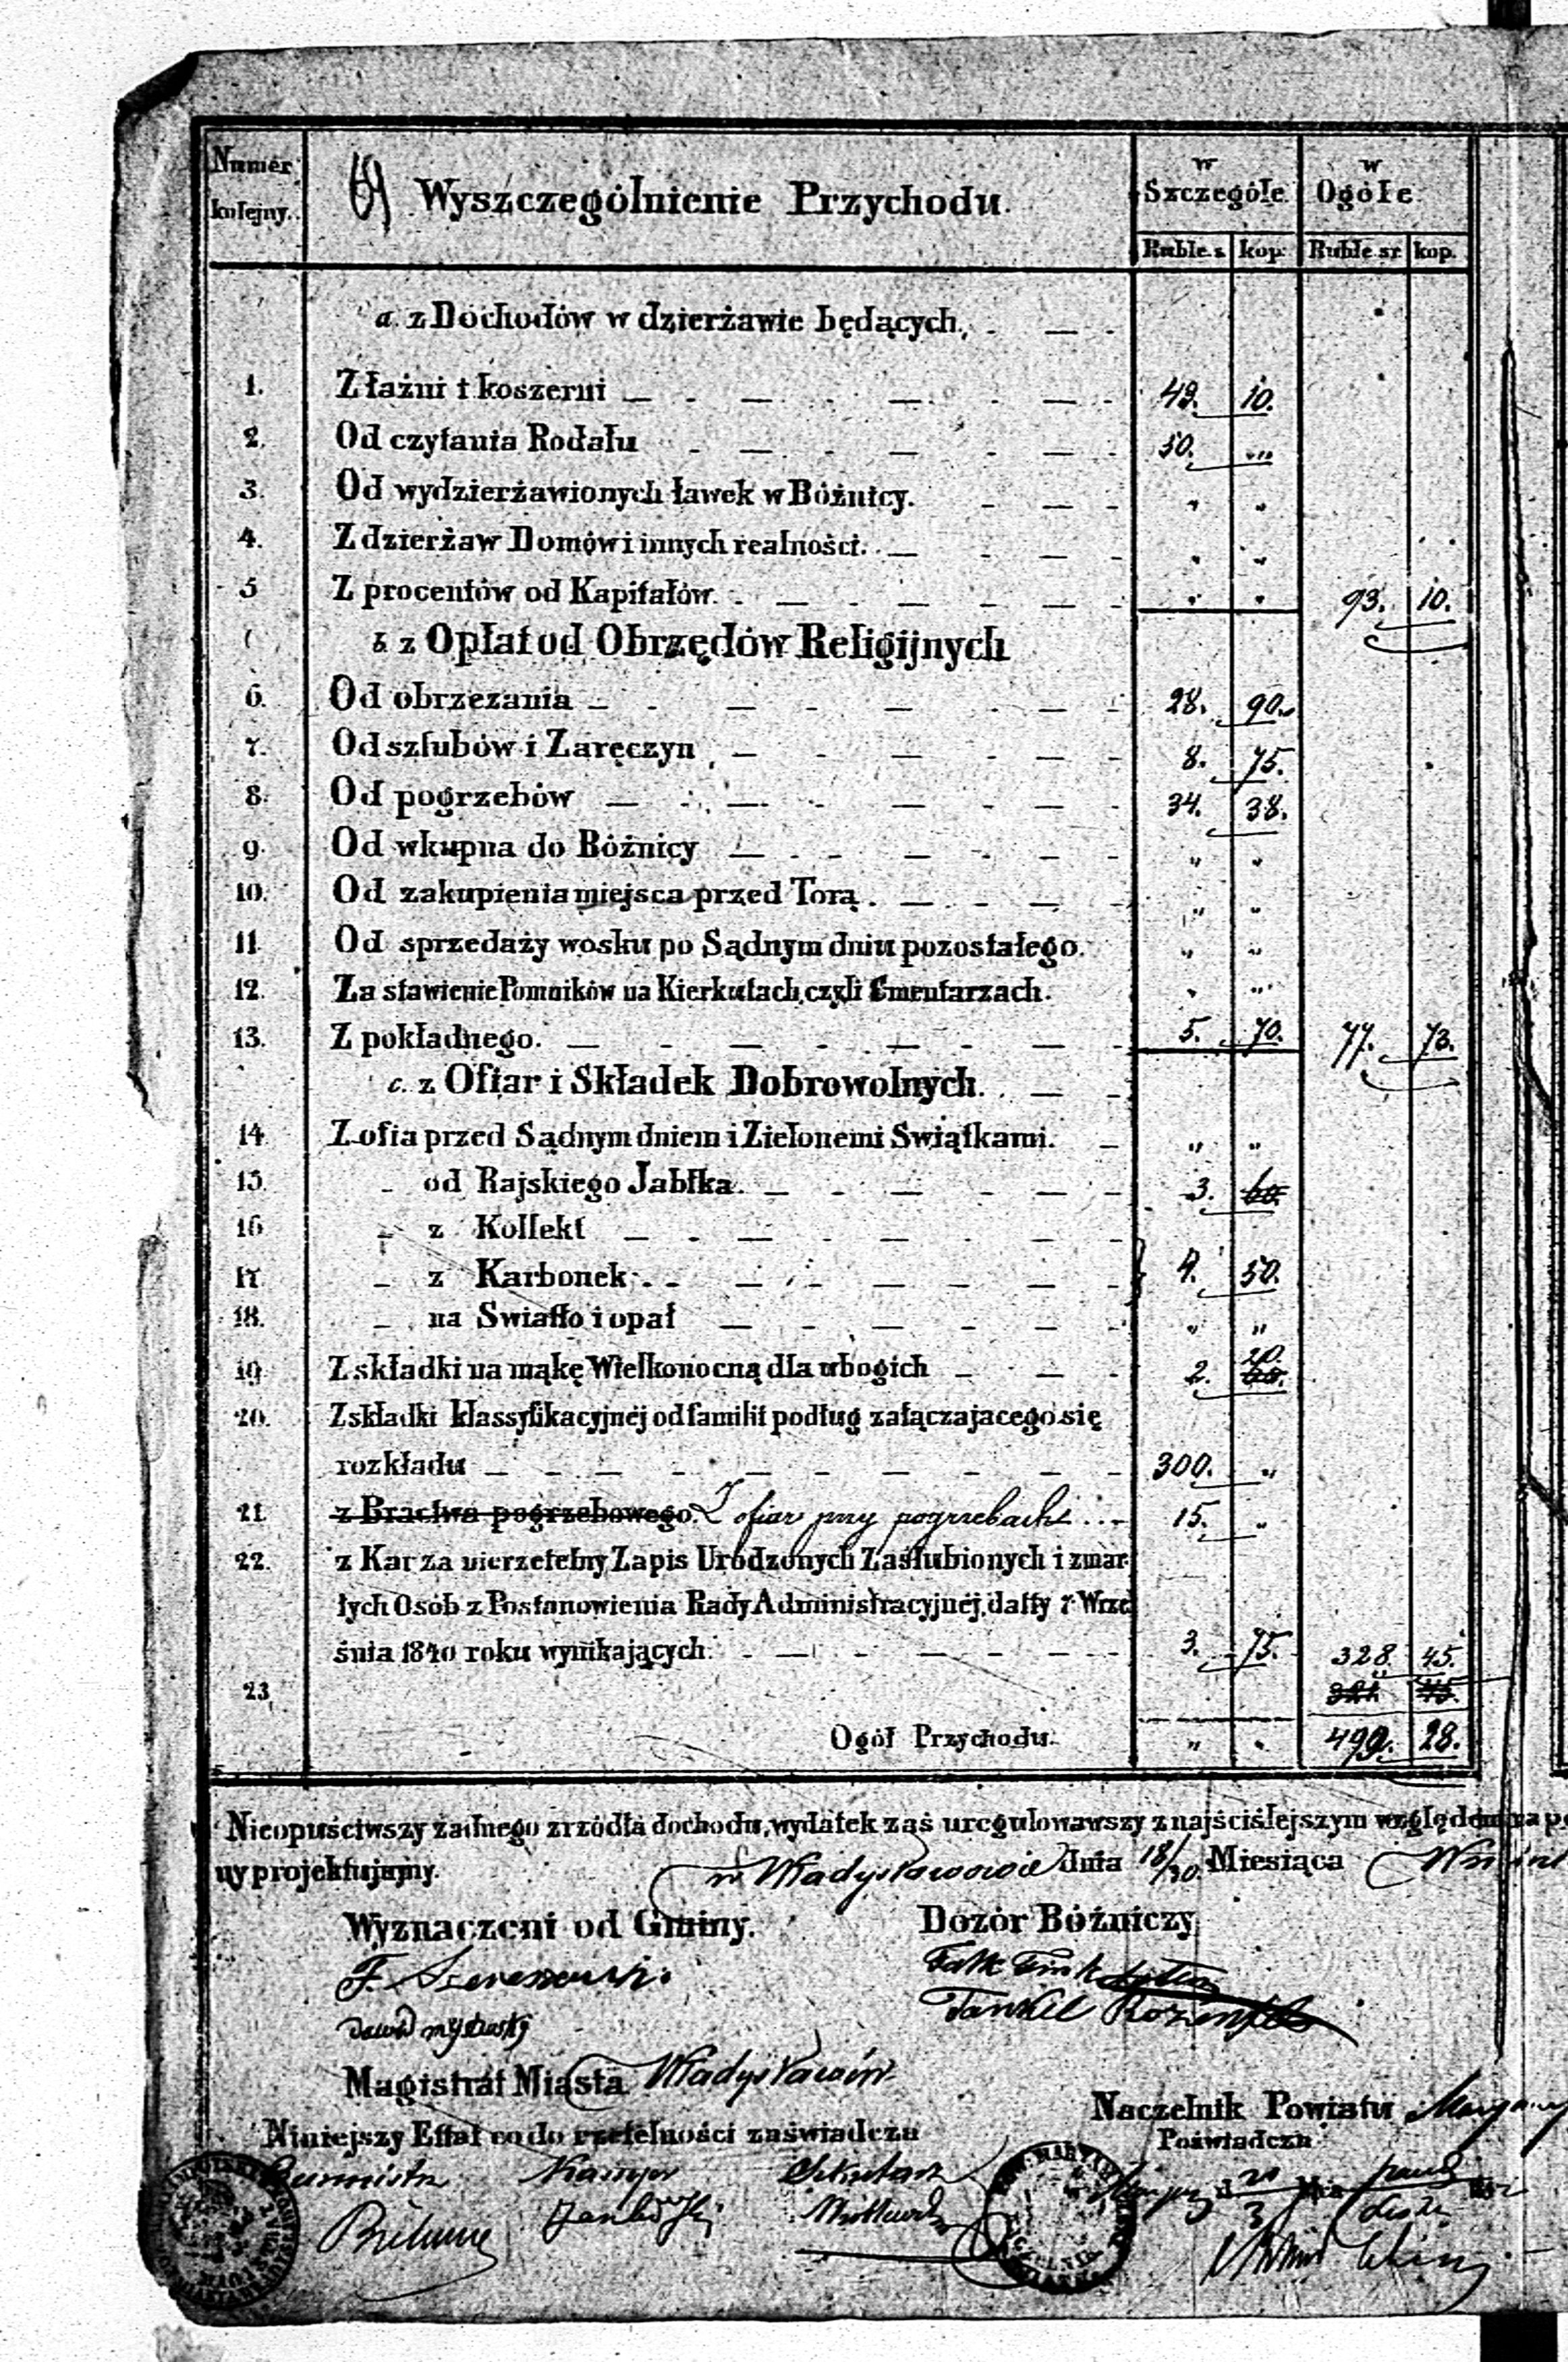 Numer kolejny. Wyszczególnienie Przychodu. w Szczególe. w Ogóle.
Ruble s. kop. Ruble sr. kop.
a. z Dochodów w dzierżawie będących.
1. Z łaźni i koszerni 43. 10.
2. Od czytania Rodału 50. „
3. Od wydzierżawionych ławek w Bóżnicy. „ „
4. Z dzierżaw Domów i innych realności. „ „
5 Z procentów od Kapitałów. „ „ 93. 10.
b. z Opłat od Obrzędów Religijnych
6. Od obrzezania 28. 90.
7. Od szlubów i Zaręczyn 8. 75.
8. Od pogrzebów 34. 38.
9. Od wkupna do Bóżnicy „ „
10. Od zakupienia miejsca przed Torą. „ „
11. Od sprzedaży wosku po Sądnym dniu pozostałego. „ „
12. Za stawienie Pomników na Kierkutach, czyli Cmentarzach. „ „
13. Z pokładnego. 5. 70. 77. 73.
c. z Ofiar i Składek Dobrowolnych.
14 Z ofia przed Sądnym dniem i Zielonemi Swiątkami. „ „
15. - od Rajskiego Jabłka. 3. 60
16 - z Kollekt
17 - z Karbonek. 4. 50.
18. - na Swiatło i opał „ „
19. Z składki na mąkę Wielkonocną dla ubogich 2. 20.
20. Z składki klassyfikacyjnéj od familii podług załączajacego się
rozkładu 300. „
21. z Bractwa pogrzebowego. Z ofiar przy pogrzebach 15. „
22. z Kar za nierzetelny Zapis Urodzonych Zaślubionych i zmar-
łych Osób z Postanowienia Rady Administracyjnéj, datty 7 Wrze
śnia 1840 roku wynikających. 3. 75. 328. 45.
23.
Ogół Przychodu. „ „ 499. 28.
Nieopuściwszy żadnego zrzódła dochodu, wydatek zaś uregulowawszy z najściślejszym względem na
ny projektujemy. w Władysławowie dnia 18/30. Miesiąca
Wyznaczeni od Gminy. Dozór Bóżniczy
Jankel
Magistrat Miasta Władysławów
Naczelnik Powiatu
Niniejszy Ettat co do rzetelności zaświadcza
Poświadcza
Burmistrz Kassyer Sekretarz